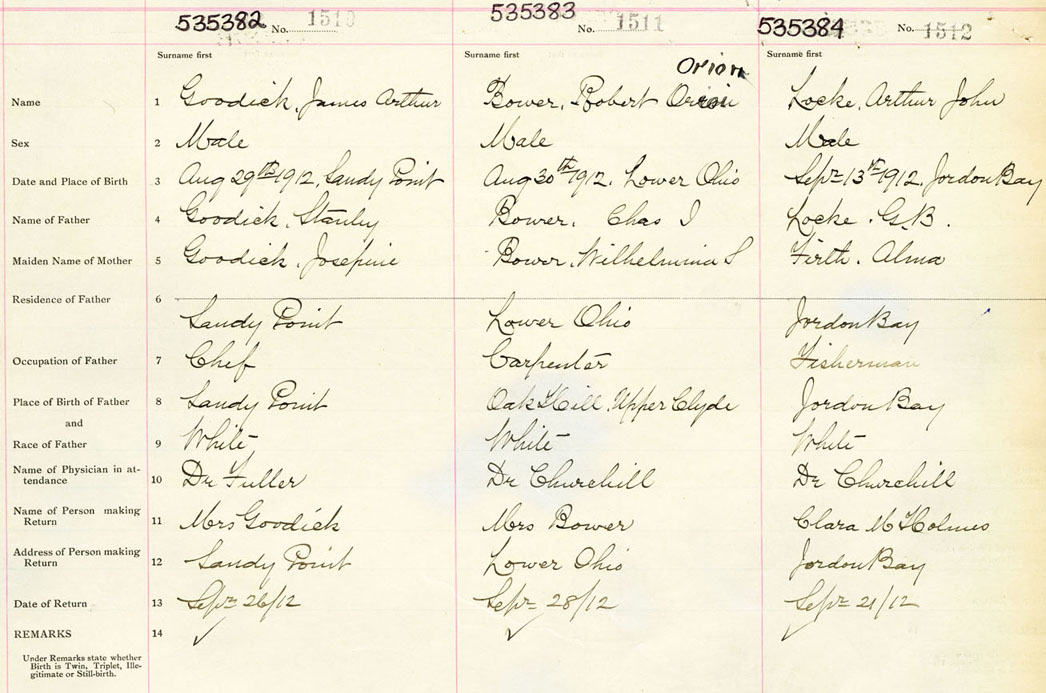 535382 No. 1510 535383 No. 1511 535384 No. 1512
Surname first Surname first Surname first
Orion
Name 1 Goodick, James Arthur Bower, Robert Locke, Arthur John
Sex 2 Male Male Male
Date and Place of Birth 3 Aug 29th 1912, Sandy Point Aug 30th 1912. Lower Ohio Sept 13th 1912, Jordon Bay
Name of Father 4 Goodick, Stanley Bower, Chas I Locke. G.B.
Maiden Name of Mother 5 Goodick, Josephine Bower, Wilhelmina S Firth. Alma
Residence of Father 6
Sandy Point Lower Ohio Jordon Bay
Occupation of Father 7 Chef Carpenter Fisherman
Place of Birth of Father 8 Sandy Point Oak Hill, Upper Clyde Jordon Bay
and
Race of Father 9 White White White
Name of Physician in at-
tendance 10 Dr Fuller Dr Churchill Dr Churchill
Name of Person making
Return 11 Mrs Goodick Mrs Bower Clara M Holmes
Address of Person making
Return 12 Sandy Point Lower Ohio Jordon Bay
Date of Return 13 Sept 26/12 Sept 28/12 Sept 21/12
REMARKS 14
Under Remarks state whether
Birth is Twin, Triplet, Ille-
gitimate or Still-birth.